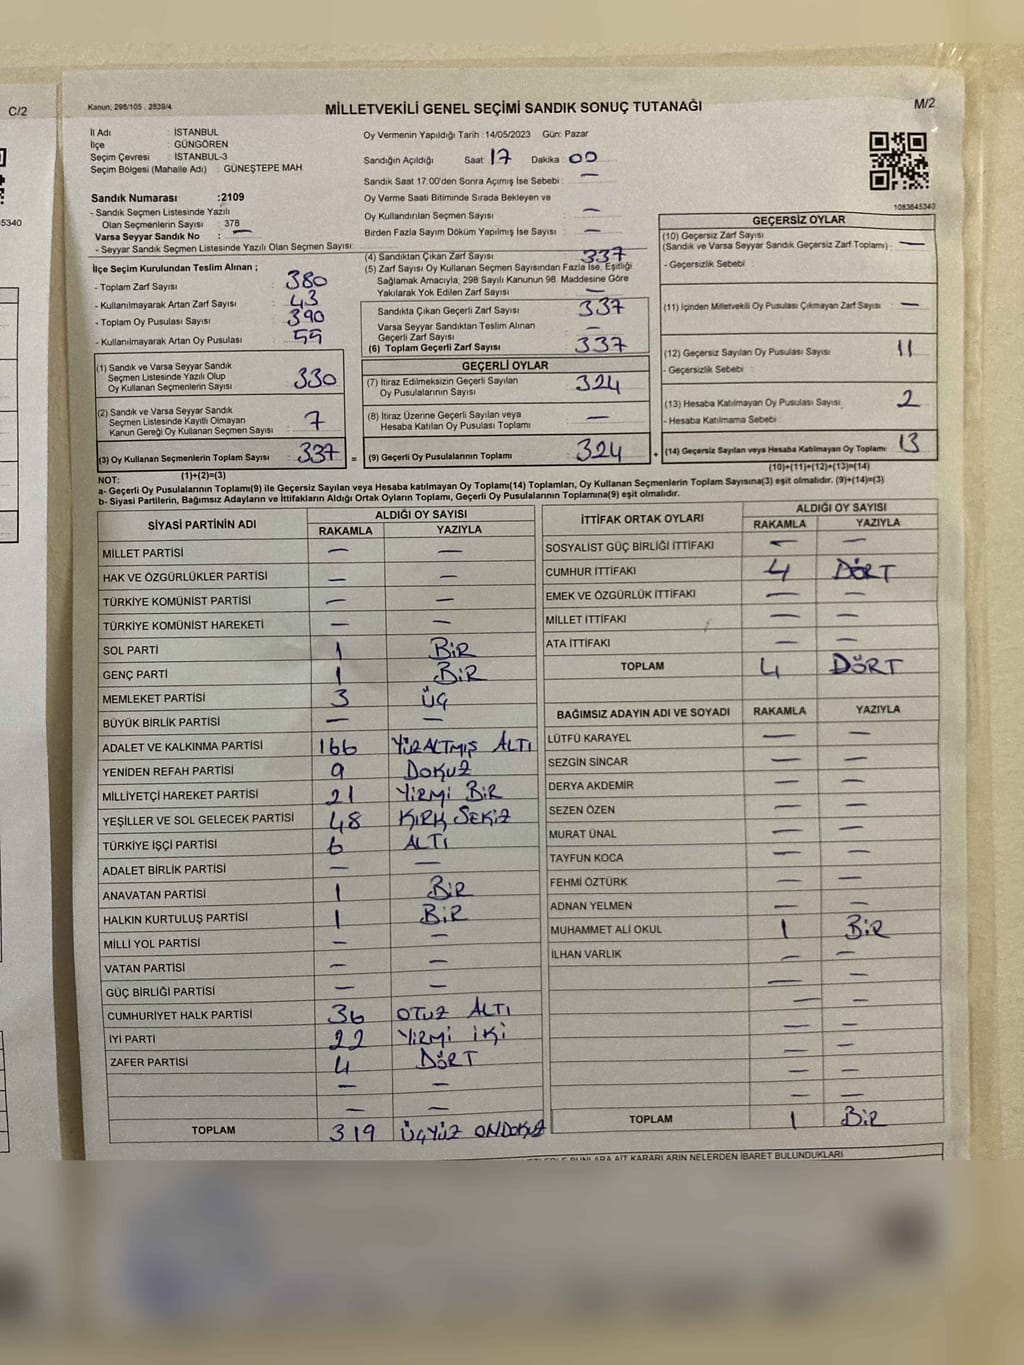 C/2
5340
Kanun: 298/105 , 2839/4
MİLLETVEKİLİ GENEL SEÇİMİ SANDIK SONUÇ TUTANAĞI
M/2
İl Adı : İSTANBUL
İlçe : GÜNGÖREN
Seçim Çevresi : İSTANBUL-3
Seçim Bölgesi (Mahalle Adı) : GÜNEŞTEPE MAH
Sandık Numarası :2109
- Sandık Seçmen Listesinde Yazılı
Olan Seçmenlerin Sayısı : 378
Varsa Seyyar Sandık No : —
- Seyyar Sandık Seçmen Listesinde Yazılı Olan Seçmen Sayısı:
Oy Vermenin Yapıldığı Tarih : 14/05/2023 Gün: Pazar
Sandığın Açıldığı Saat: 17 Dakika: 00
Sandık Saat 17:00'den Sonra Açımış İse Sebebi : —
Oy Verme Saati Bitiminde Sırada Bekleyen ve
Oy Kullandırılan Seçmen Sayısı : —
Birden Fazla Sayım Döküm Yapılmış İse Sayısı : —
1083645340
İlçe Seçim Kurulundan Teslim Alınan ;
- Toplam Zarf Sayısı : 380
- Kullanılmayarak Artan Zarf Sayısı : 43
- Toplam Oy Pusulası Sayısı : 390
- Kullanılmayarak Artan Oy Pusulası : 55
(1) Sandık ve Varsa Seyyar Sandık
Seçmen Listesinde Yazılı Olup
Oy Kullanan Seçmenlerin Sayısı : 330
(2) Sandık ve Varsa Seyyar Sandık
Seçmen Listesinde Kayıtlı Olmayan
Kanun Gereği Oy Kullanan Seçmen Sayısı : 7
(3) Oy Kullanan Seçmenlerin Toplam Sayısı : 337
(1)+(2)=(3)
(4) Sandıktan Çıkan Zarf Sayısı : 337
(5) Zarf Sayısı Oy Kullanan Seçmen Sayısından Fazla İse, Eşitliği
Sağlamak Amacıyla; 298 Sayılı Kanunun 98. Maddesine Göre
Yakılarak Yok Edilen Zarf Sayısı : —
Sandıkta Çıkan Geçerli Zarf Sayısı : 337
Varsa Seyyar Sandıktan Teslim Alınan
Geçerli Zarf Sayısı : —
(6) Toplam Geçerli Zarf Sayısı : 337
GEÇERLİ OYLAR
(7) İtiraz Edilmeksizin Geçerli Sayılan
Oy Pusulalarının Sayısı : 324
(8) İtiraz Üzerine Geçerli Sayılan veya
Hesaba Katılan Oy Pusulası Toplamı : —
= (9) Geçerli Oy Pusulalarının Toplamı : 324
GEÇERSİZ OYLAR
(10) Geçersiz Zarf Sayısı
(Sandık ve Varsa Seyyar Sandık Geçersiz Zarf Toplamı) : —
- Geçersizlik Sebebi :
(11) İçinden Milletvekili Oy Pusulası Çıkmayan Zarf Sayısı : —
(12) Geçersiz Sayılan Oy Pusulası Sayısı : 11
- Geçersizlik Sebebi
(13) Hesaba Katılmayan Oy Pusulası Sayısı : 2
- Hesaba Katılmama Sebebi :
+ (14) Geçersiz Sayılan veya Hesaba Katılmayan Oy Toplamı : 13
(10)+(11)+(12)+(13)=(14)
NOT:
a- Geçerli Oy Pusulalarının Toplamı(9) ile Geçersiz Sayılan veya Hesaba katılmayan Oy Toplamı(14) Toplamları, Oy Kullanan Seçmenlerin Toplam Sayısına(3) eşit olmalıdır. (9)+(14)=(3)
b- Siyasi Partilerin, Bağımsız Adayların ve İttifakların Aldığı Ortak Oyların Toplamı, Geçerli Oy Pusulalarının Toplamına(9) eşit olmalıdır.
SİYASİ PARTİNİN ADI
ALDIĞI OY SAYISI
RAKAMLA YAZIYLA
MİLLET PARTİSİ — —
HAK VE ÖZGÜRLÜKLER PARTİSİ — —
TÜRKİYE KOMÜNİST PARTİSİ — —
TÜRKİYE KOMÜNİST HAREKETİ — —
SOL PARTİ 1 BİR
GENÇ PARTİ 1 BİR
MEMLEKET PARTİSİ 3 ÜÇ
BÜYÜK BİRLİK PARTİSİ — —
ADALET VE KALKINMA PARTİSİ 166 YÜZALTMIŞ ALTI
YENİDEN REFAH PARTİSİ 9 DOKUZ
MİLLİYETÇİ HAREKET PARTİSİ 21 YİRMİ BİR
YEŞİLLER VE SOL GELECEK PARTİSİ 48 KIRK SEKİZ
TÜRKİYE İŞÇİ PARTİSİ 6 ALTI
ADALET BİRLİK PARTİSİ — —
ANAVATAN PARTİSİ 1 BİR
HALKIN KURTULUŞ PARTİSİ 1 BİR
MİLLİ YOL PARTİSİ — —
VATAN PARTİSİ — —
GÜÇ BİRLİĞİ PARTİSİ — —
CUMHURİYET HALK PARTİSİ 36 OTUZ ALTI
İYİ PARTİ 22 YİRMİ İKİ
ZAFER PARTİSİ 4 DÖRT
— —
— —
TOPLAM 319 ÜÇYÜZ ONDOKUZ
İTTİFAK ORTAK OYLARI
ALDIĞI OY SAYISI
RAKAMLA YAZIYLA
SOSYALİST GÜÇ BİRLİĞİ İTTİFAKI — —
CUMHUR İTTİFAKI 4 DÖRT
EMEK VE ÖZGÜRLÜK İTTİFAKI — —
MİLLET İTTİFAKI — —
ATA İTTİFAKI — —
TOPLAM 4 DÖRT
BAĞIMSIZ ADAYIN ADI VE SOYADI RAKAMLA YAZIYLA
LÜTFÜ KARAYEL — —
SEZGİN SİNCAR — —
DERYA AKDEMİR — —
SEZEN ÖZEN — —
MURAT ÜNAL — —
TAYFUN KOCA — —
FEHMİ ÖZTÜRK — —
ADNAN YELMEN — —
MUHAMMET ALİ OKUL 1 BİR
İLHAN VARLIK — —
— —
— —
— —
— —
— —
— —
TOPLAM 1 BİR
BUNLARA AİT KARARLARIN NELERDEN İBARET BULUNDUKLARI